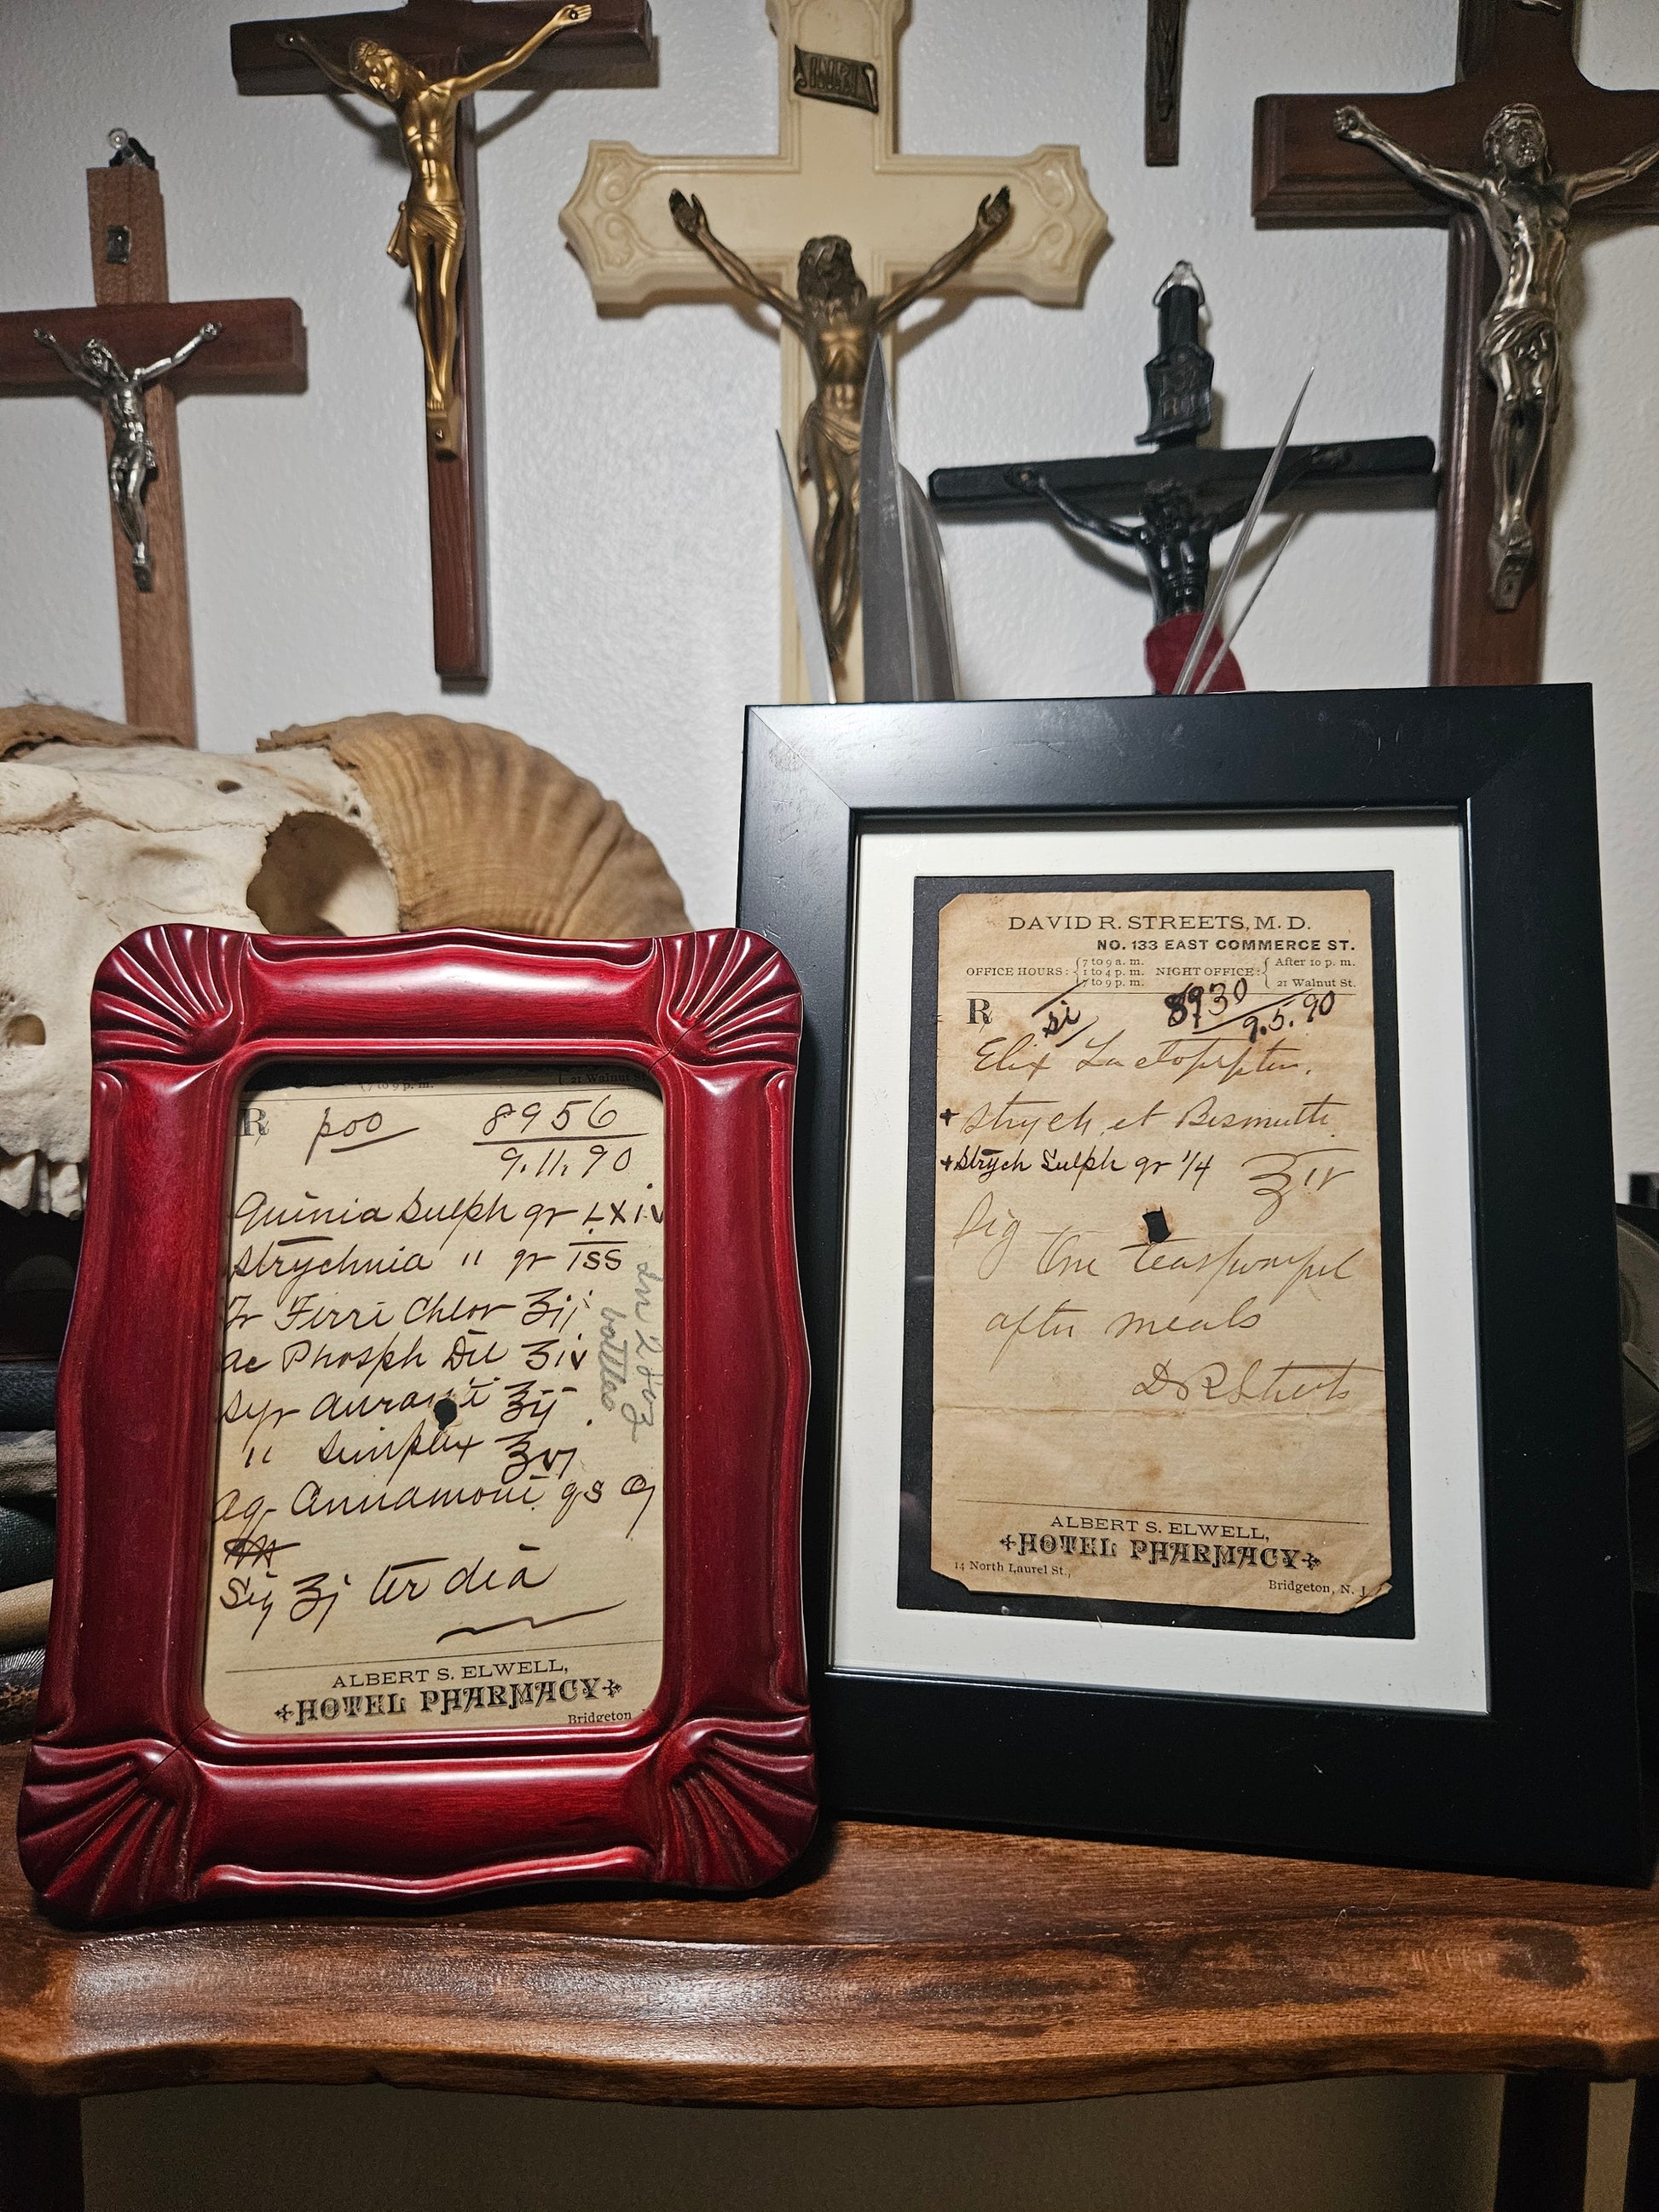 INRI
(7 to 9 p. m. 21 Walnut St.
R poo 8956
9.11.90
Quinia Sulph gr LXIV
Strychnia " gr iss
Tr Ferri Chlor ʒij
ac Phosph Dil ʒiv
Syr Aurantii ʒij
" Simplex ʒvj
Aq Cinnamoni qs
Sig ʒj ter dia
in 2 8oz
bottles
ALBERT S. ELWELL,
HOTEL PHARMACY
Bridgeton
DAVID R. STREETS, M. D.
NO. 133 EAST COMMERCE ST.
OFFICE HOURS: { 7 to 9 a. m. 1 to 4 p. m. 7 to 9 p. m. NIGHT OFFICE: { After 10 p. m. 21 Walnut St.
R si 8930
9.5.90
Elix Lactopeptin.
+ Strych et Bismuth
+ Strych Sulph gr 1/4 ʒiv
Sig One teaspoonful
after meals
D R Streets
ALBERT S. ELWELL,
HOTEL PHARMACY
14 North Laurel St., Bridgeton, N. J.